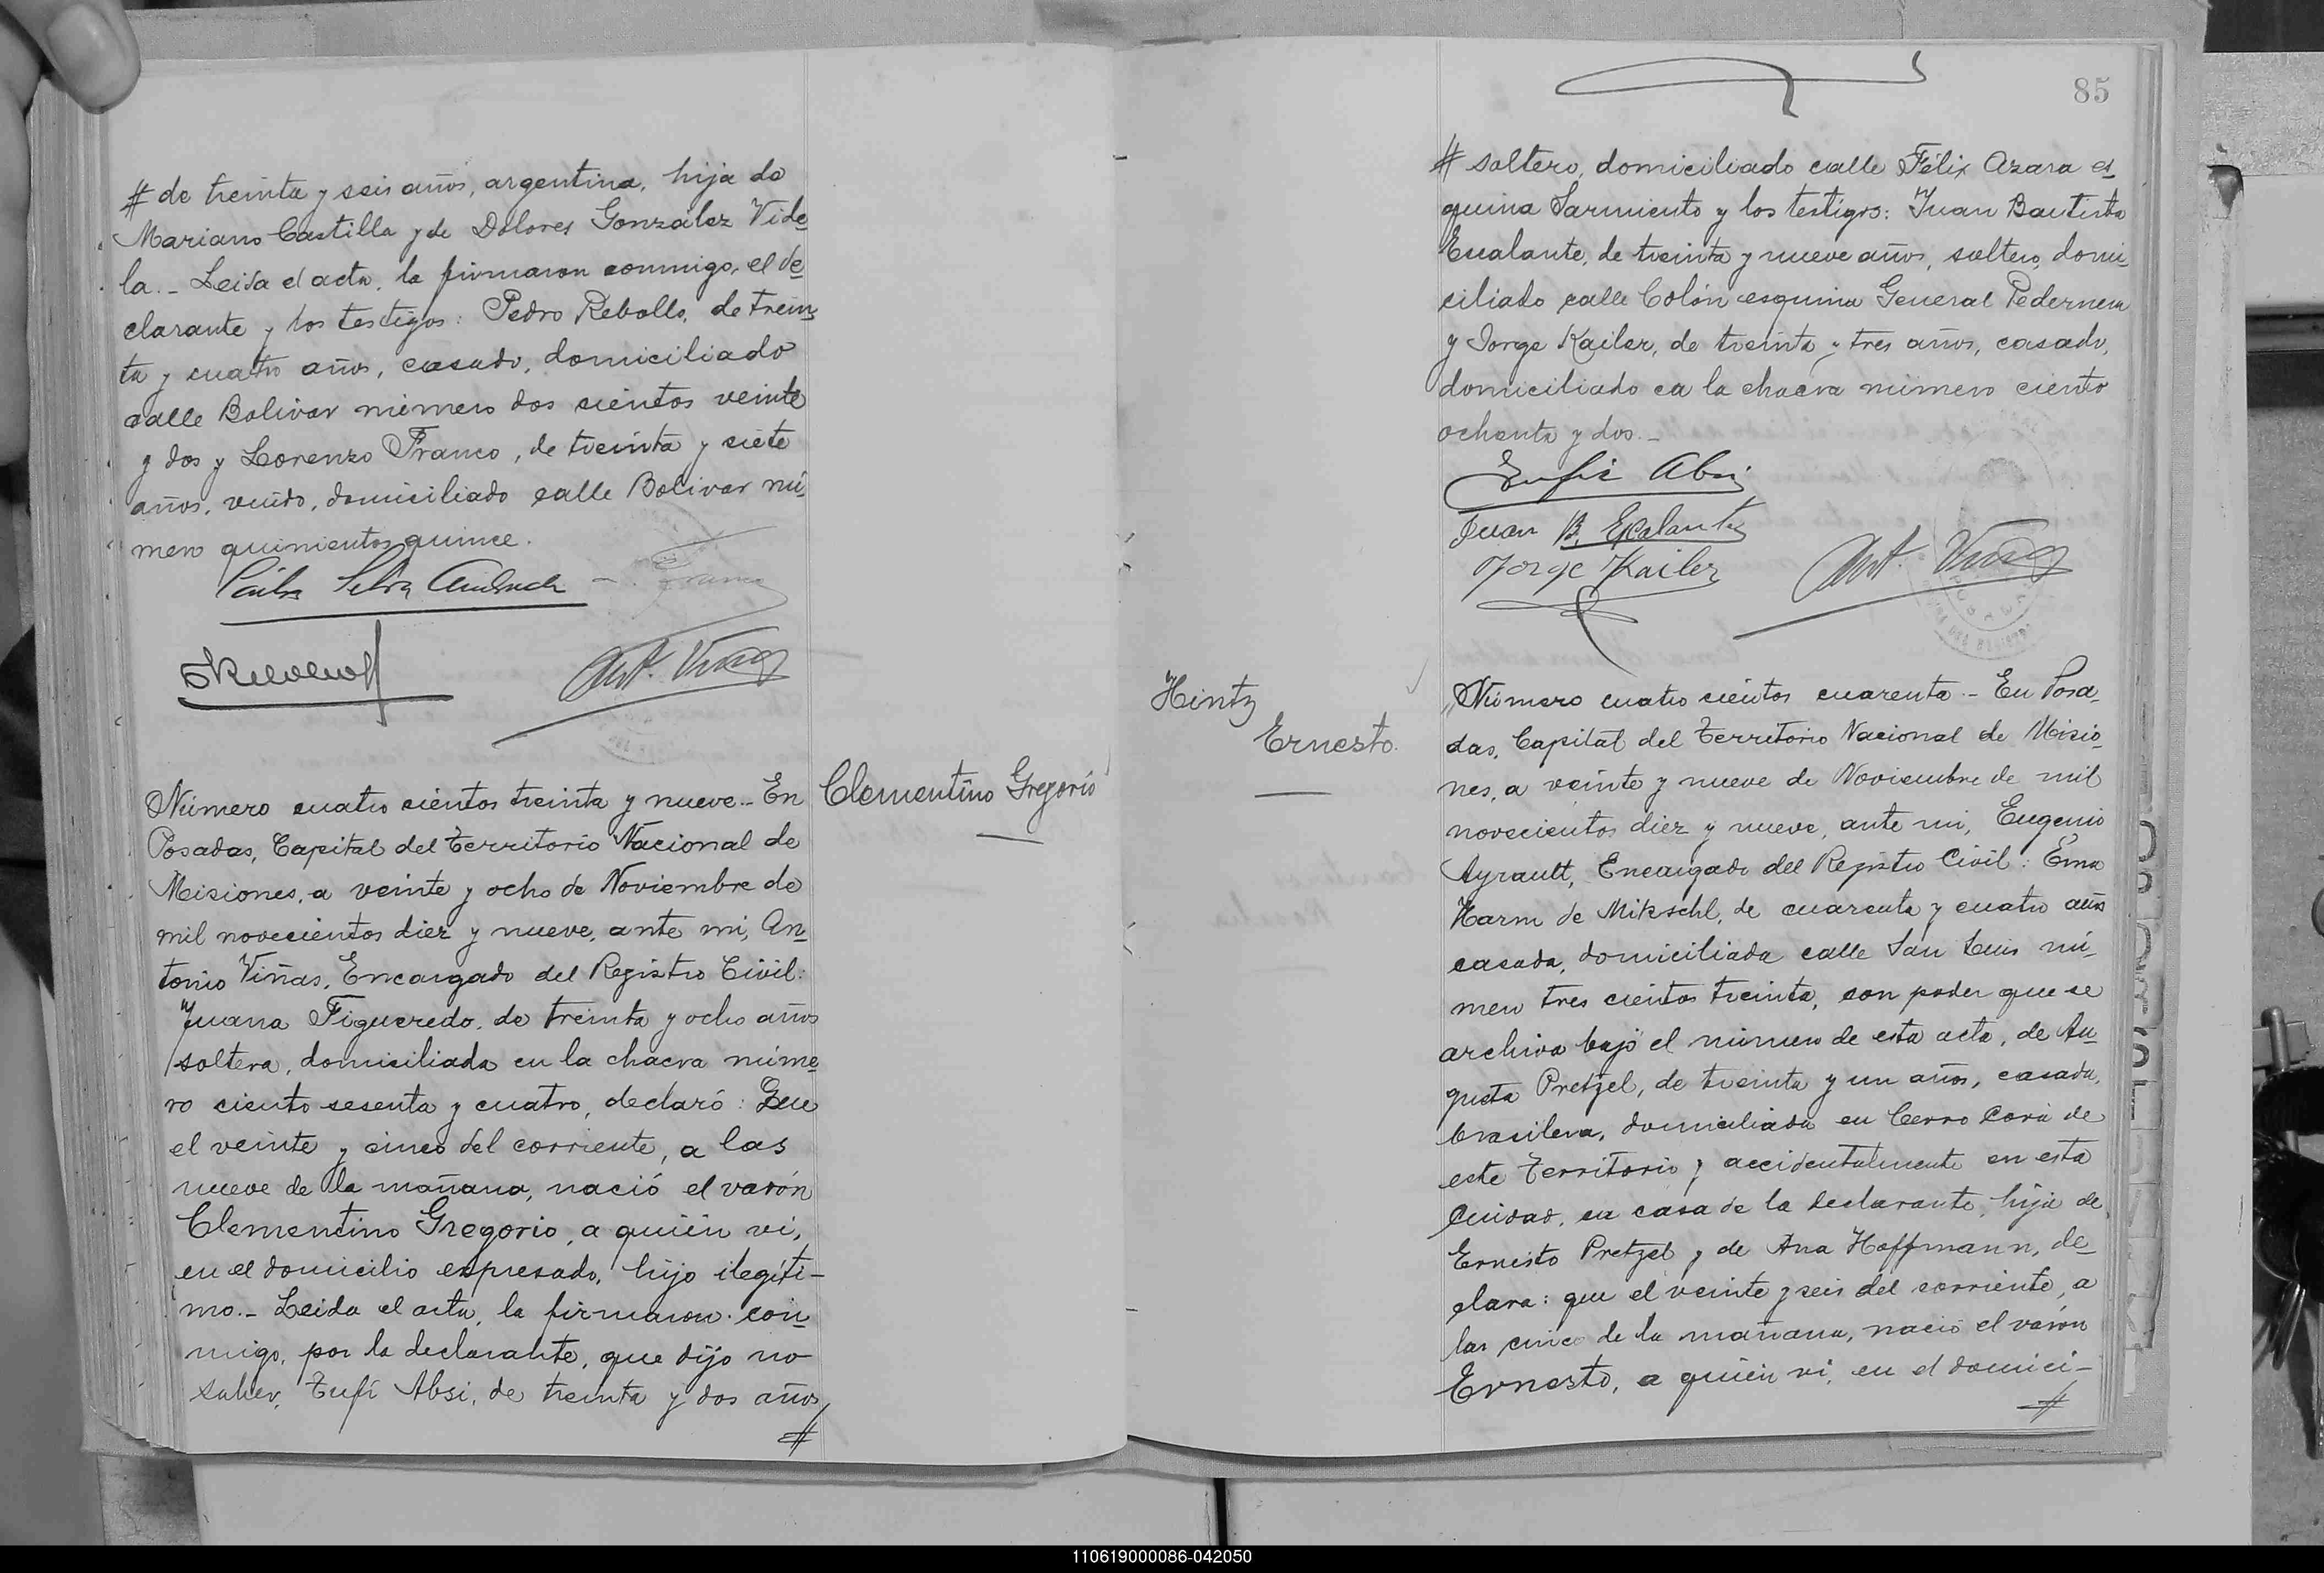 # de treinta y seis años, argentina, hija de
Mariano Castilla y de Dolores González Vide
la.- Leida el acta, la firmaron conmigo, el de
clarante y los testigos: Pedro Rebollo, de trein
ta y cuatro años, casado, domiciliado
calle Bolivar número dos cientos veinte
y dos y Lorenzo Franco, de treinta y siete
años, viudo, domiciliado calle Bolivar nú
mero quinientos quince.
Ant. Viñas
Número cuatro cientos treinta y nueve.- En
Posadas, Capital del Territorio Nacional de
Misiones, a veinte y ocho de Noviembre de
mil novecientos diez y nueve, ante mi, An
tonio Viñas, Encargado del Registro Civil:
Juana Figueredo, de treinta y ocho años
soltera, domiciliada en la chacra núme
ro ciento sesenta y cuatro, declaró: Que
el veinte y cinco del corriente, a las
nueve de la mañana, nació el varón
Clementino Gregorio, a quién vi,
en el domicilio expresado, hijo ilegíti-
mo.- Leida el acta, la firmaron con
migo, por la declarante, que dijo no
saber, Tufí Absi, de treinta y dos años
#
Clementino Gregorio
85
# soltero, domiciliado calle Félix Azara es
quina Sarmiento y los testigos: Juan Bautista
Escalante, de treinta y nueve años, soltero, domi
ciliado calle Colón esquina General Pedernera
y Jorge Kailer, de treinta y tres años, casado,
domiciliado en la chacra número ciento
ochenta y dos.-
Tufic Absi
Juan B. Escalante
Jorge Kailer
Ant. Viñas
Hintz
Ernesto.
Número cuatro cientos cuarenta.- En Posa-
das, Capital del Territorio Nacional de Misio-
nes, a veinte y nueve de Noviembre de mil
novecientos diez y nueve, ante mi, Eugenio
Ayrault, Encargado del Registro Civil: Ema
Harm de Mikschl, de cuarenta y cuatro años
casada, domiciliada calle San Luis nú-
mero tres cientos treinta, con poder que se
archiva bajo el número de esta acta, de Au-
gusta Pretzel, de treinta y un años, casada,
brasilera, domiciliada en Cerro Corá de
este Territorio y accidentalmente en esta
Ciudad, en casa de la declarante, hija de
Ernesto Pretzel y de Ana Hoffmann, de
clara: que el veinte y seis del corriente, a
las cinco de la mañana, nació el varón
Ernesto, a quién vi, en el domici-
#
110619000086-042050